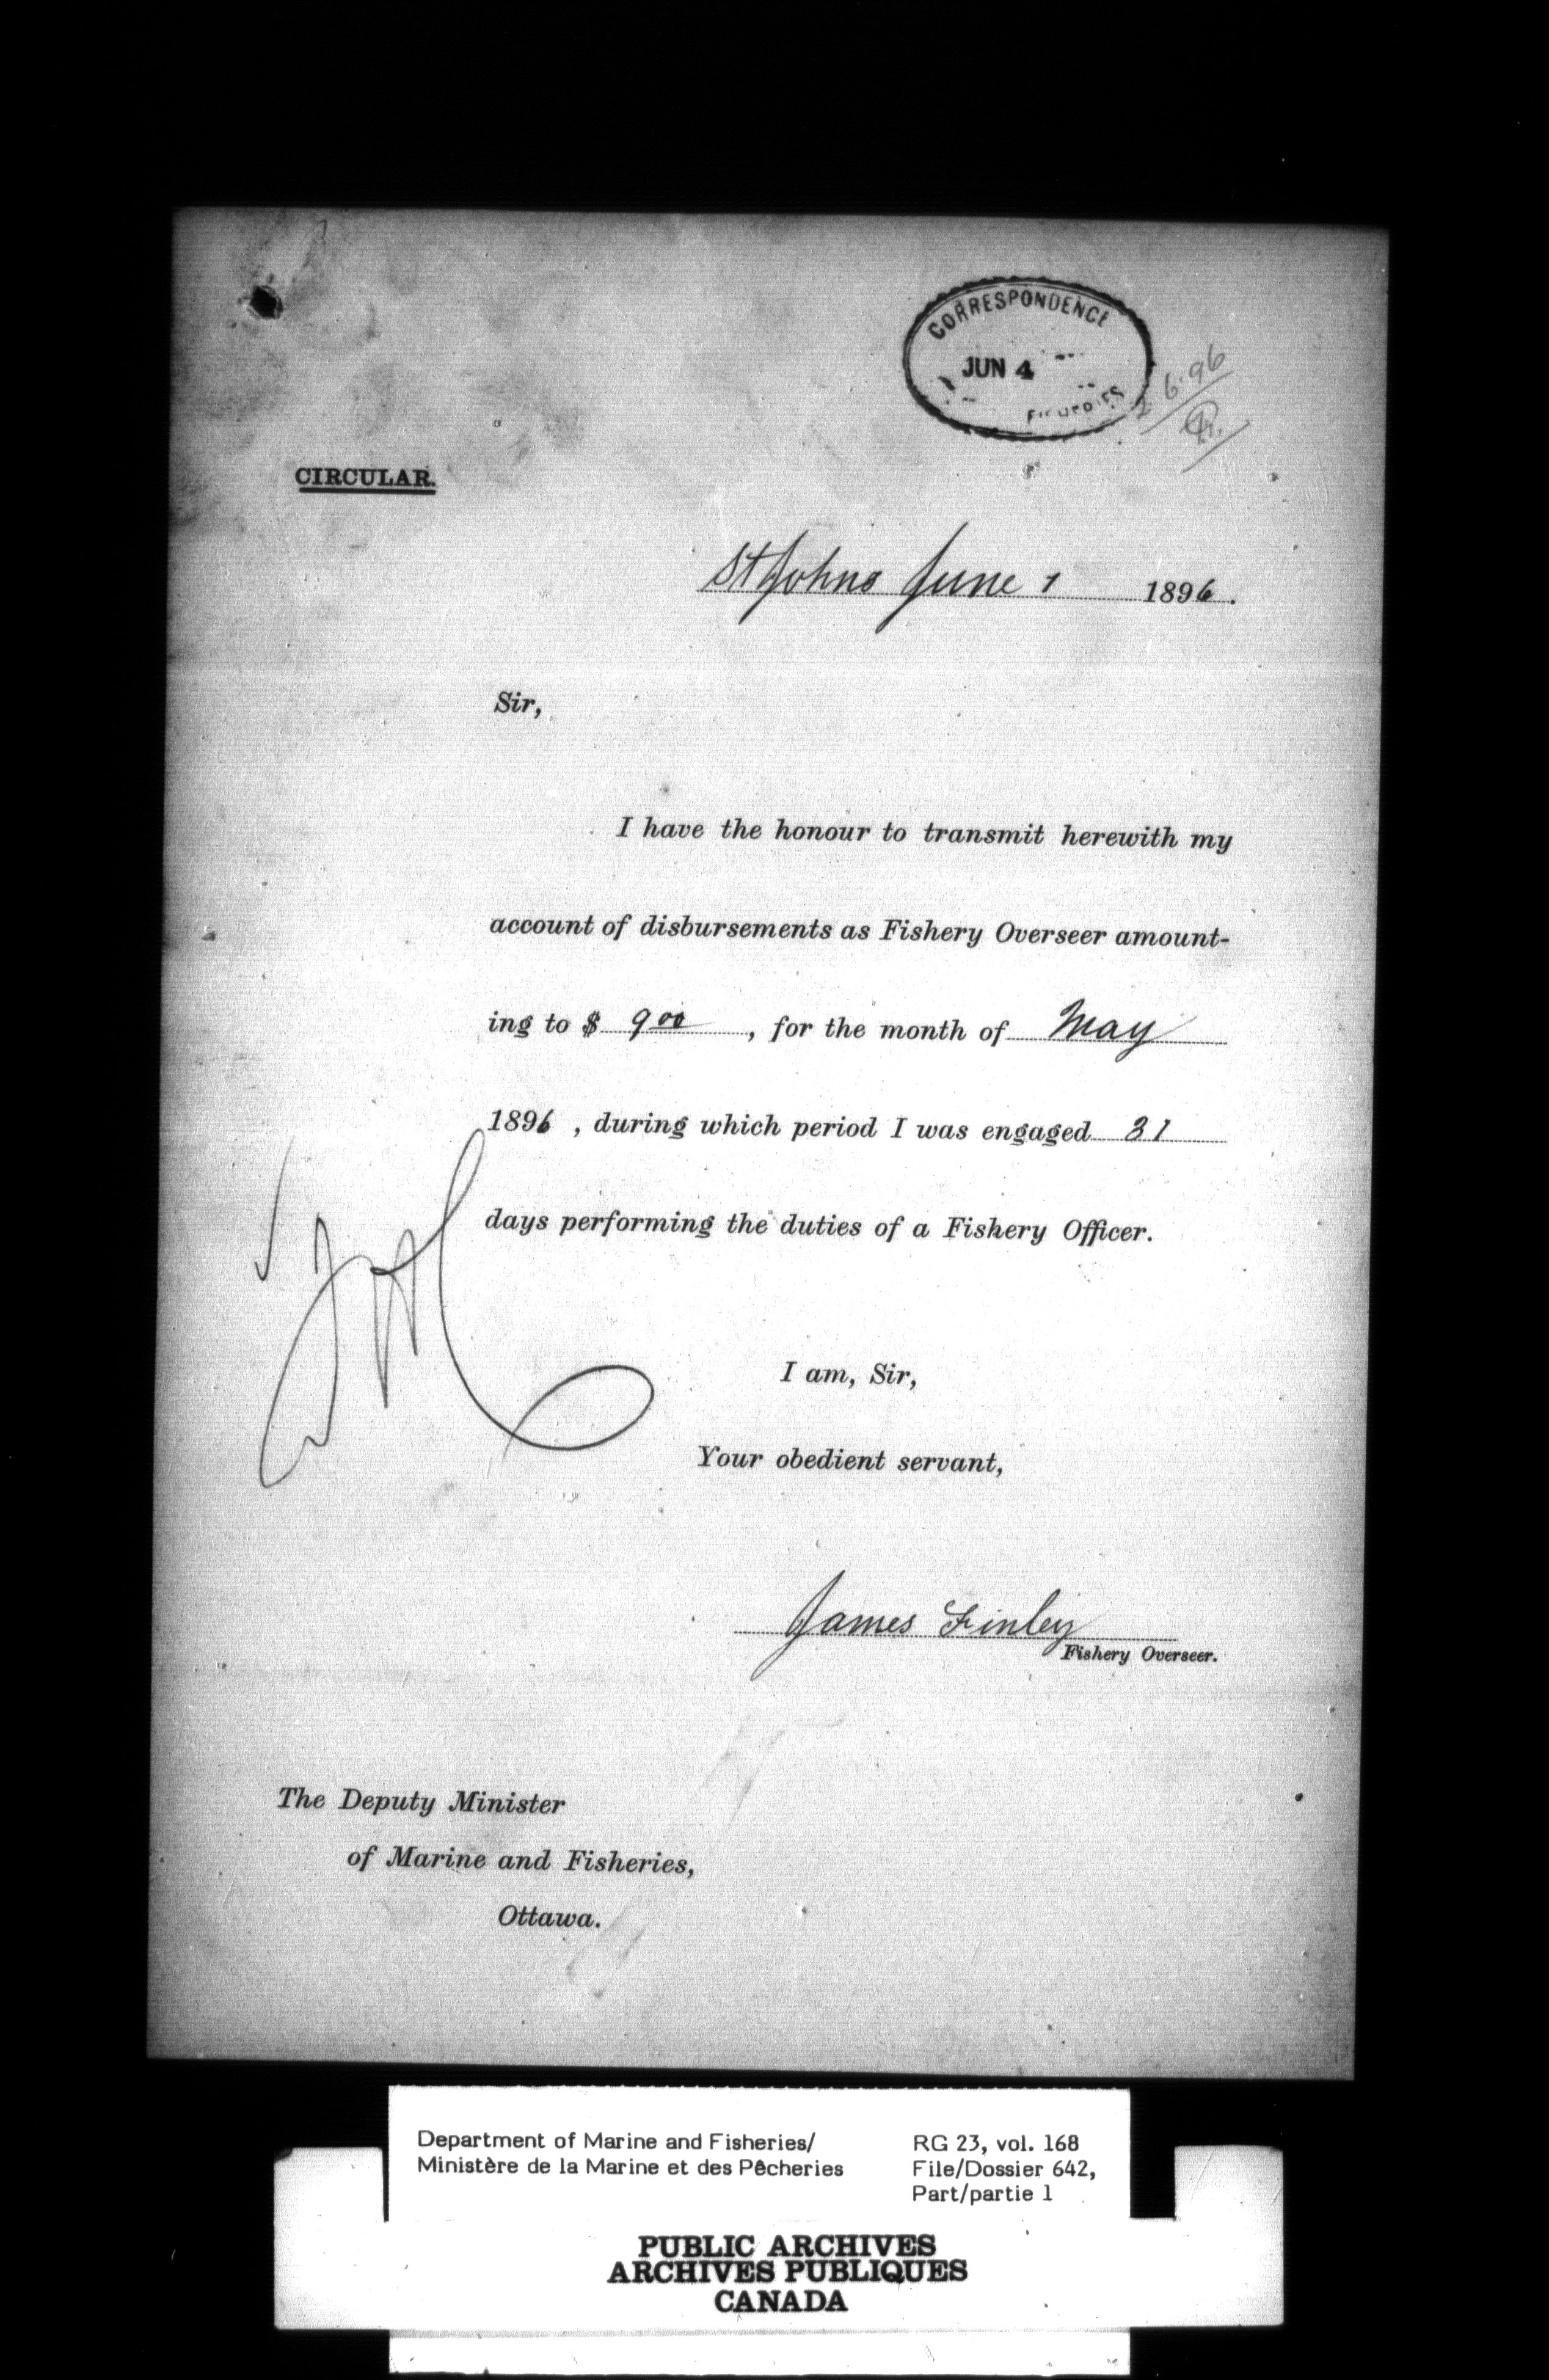 CORRESPONDENCE
JUN 4
FISHERIES
6.96
CIRCULAR.
St Johns June 1 1896.
Sir,
I have the honour to transmit herewith my
account of disbursements as Fishery Overseer amount-
ing to $ 9 00, for the month of May
1896, during which period I was engaged 31
days performing the duties of a Fishery Officer.
I am, Sir,
Your obedient servant,
James Finley
Fishery Overseer.
The Deputy Minister
of Marine and Fisheries,
Ottawa.
Department of Marine and Fisheries/ RG 23, vol. 168
Ministère de la Marine et des Pêcheries File/Dossier 642,
Part/partie 1
PUBLIC ARCHIVES
ARCHIVES PUBLIQUES
CANADA